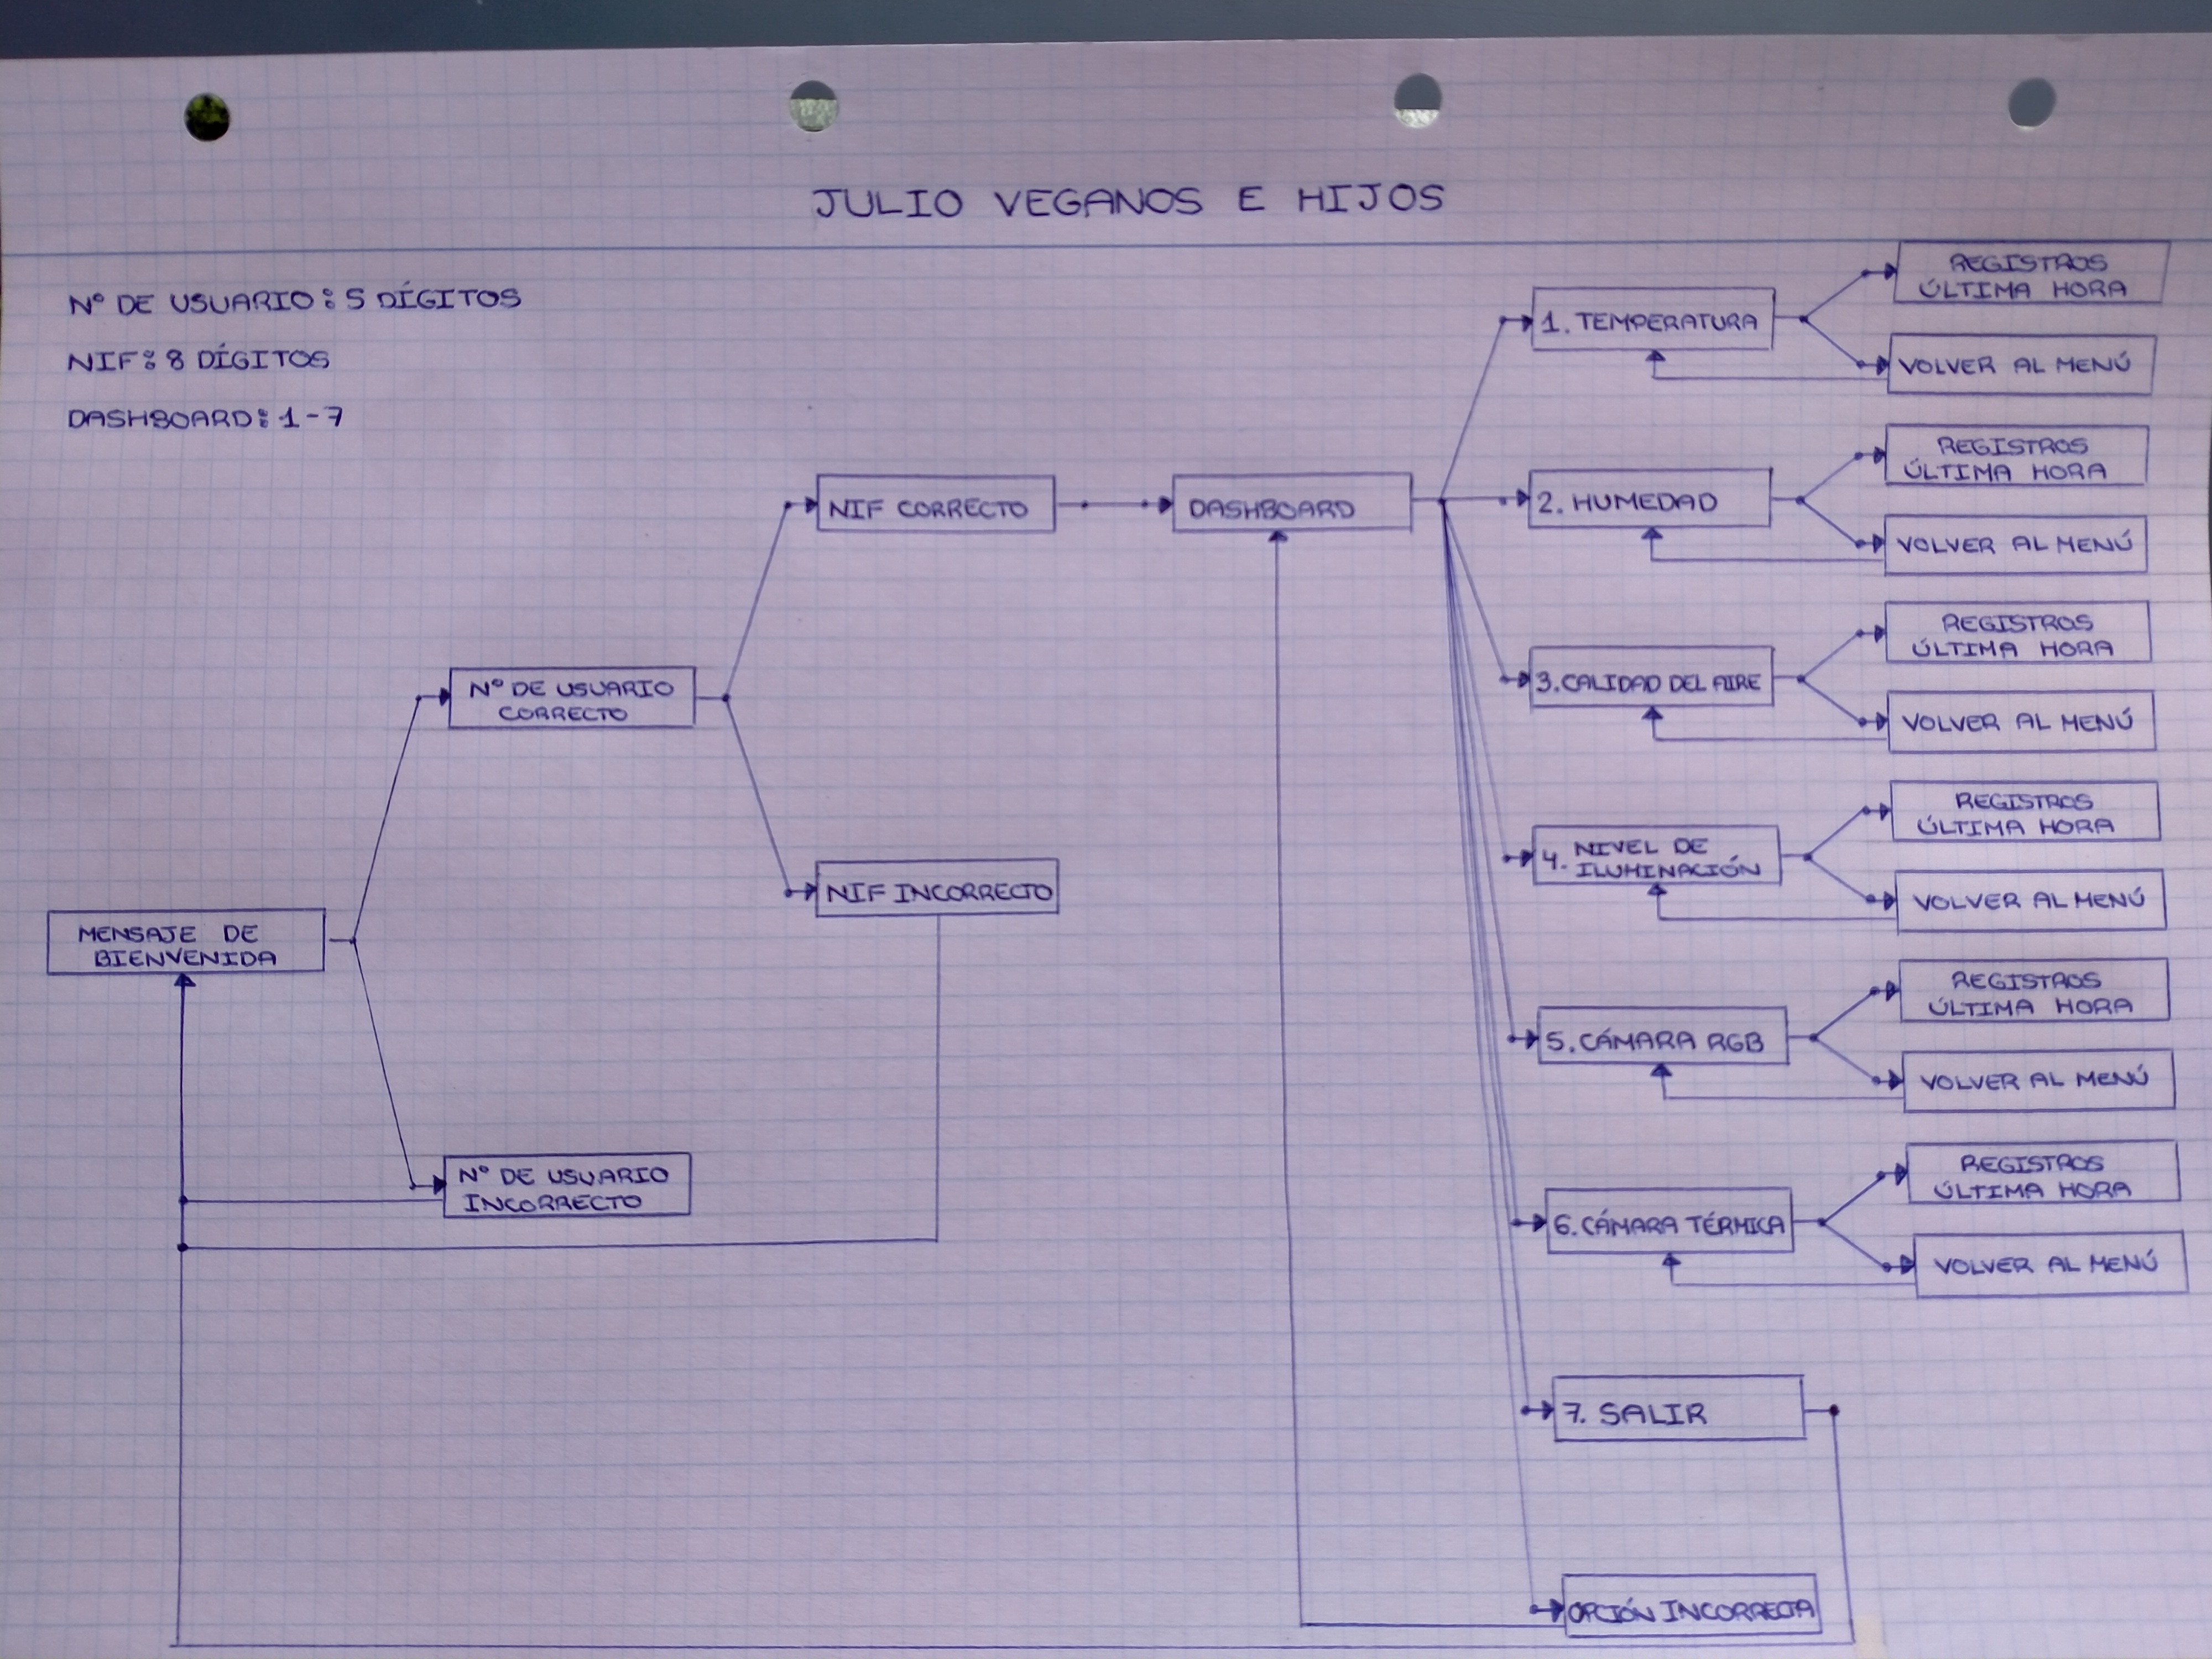 JULIO VEGANOS E HIJOS
Nº DE USUARIO: 5 DÍGITOS
NIF: 8 DÍGITOS
DASHBOARD: 1-7
MENSAJE DE
BIENVENIDA
Nº DE USUARIO
CORRECTO
Nº DE USUARIO
INCORRECTO
NIF CORRECTO
NIF INCORRECTO
DASHBOARD
1. TEMPERATURA
REGISTROS
ÚLTIMA HORA
VOLVER AL MENÚ
2. HUMEDAD
REGISTROS
ÚLTIMA HORA
VOLVER AL MENÚ
3. CALIDAD DEL AIRE
REGISTROS
ÚLTIMA HORA
VOLVER AL MENÚ
4. NIVEL DE
ILUMINACIÓN
REGISTROS
ÚLTIMA HORA
VOLVER AL MENÚ
5. CÁMARA RGB
REGISTROS
ÚLTIMA HORA
VOLVER AL MENÚ
6. CÁMARA TÉRMICA
REGISTROS
ÚLTIMA HORA
VOLVER AL MENÚ
7. SALIR
OPCIÓN INCORRECTA